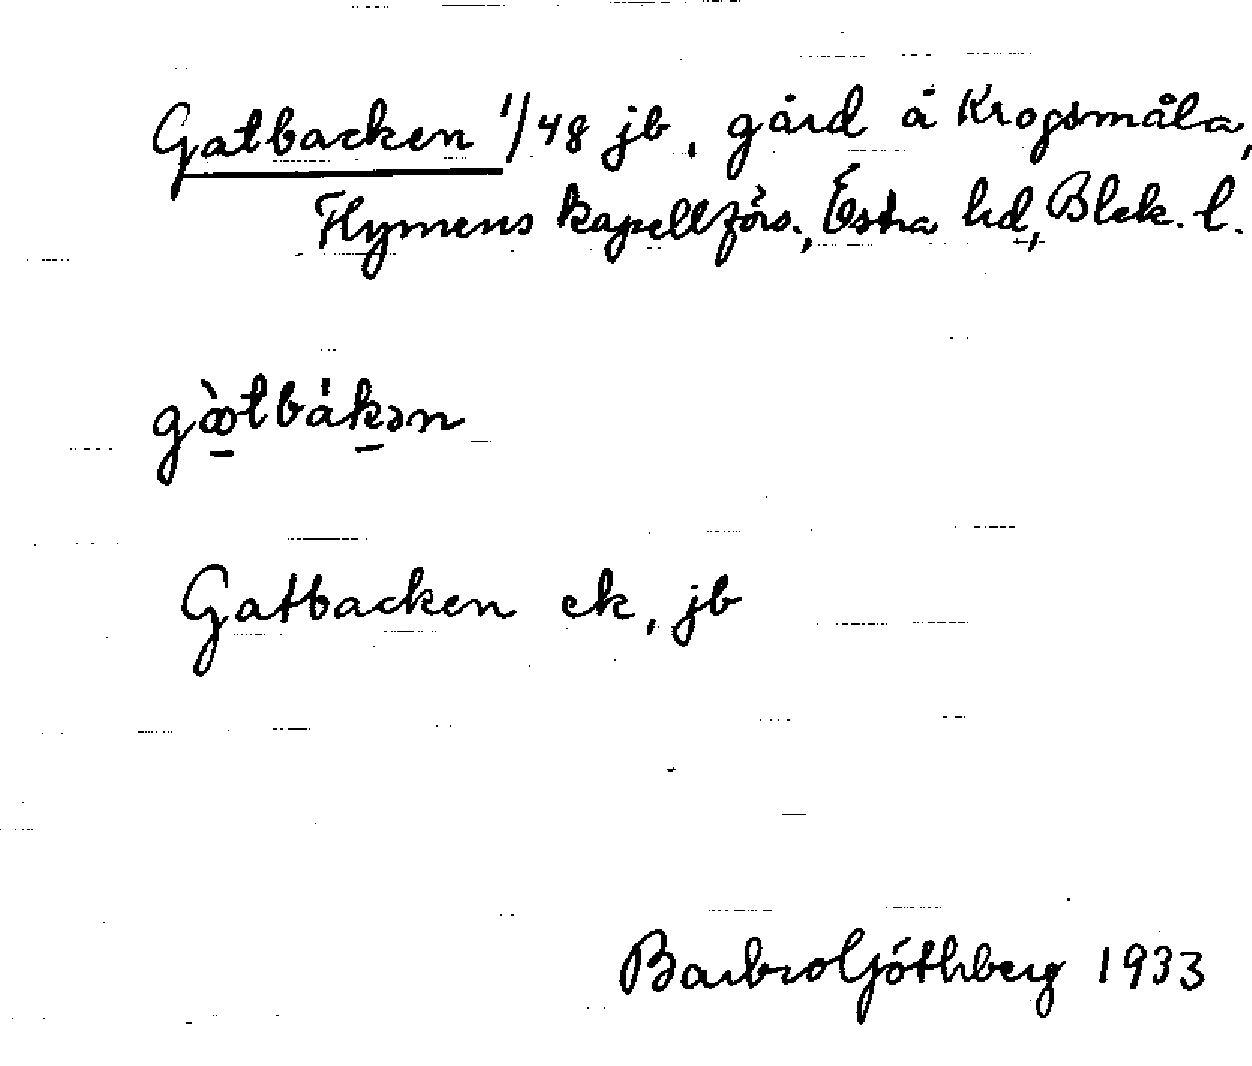 Gatbacken 1/48 jb, gård å Krogsmåla,
Flymens kapellförs., Östra hd, Blek. l.
gꝏ̱̀tbáḵən
Gatbacken ek, jb
Barbro Göthberg 1933